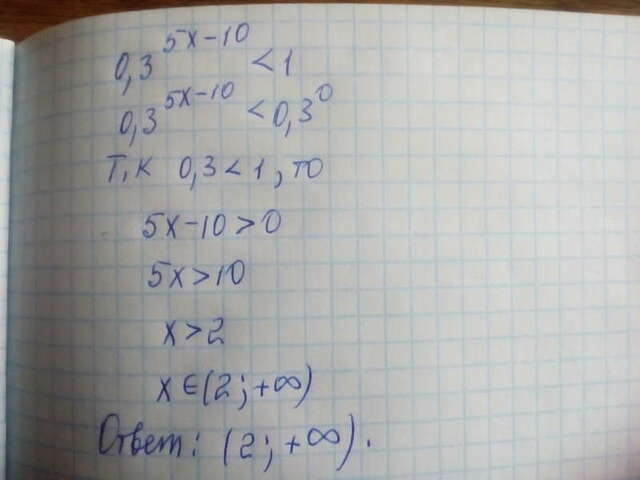 0,3^(5x-10) < 1
0,3^(5x-10) < 0,3^0
Т,к 0,3 < 1, то
5x-10>0
5x>10
x>2
x∈(2;+∞)
Ответ: (2;+∞).